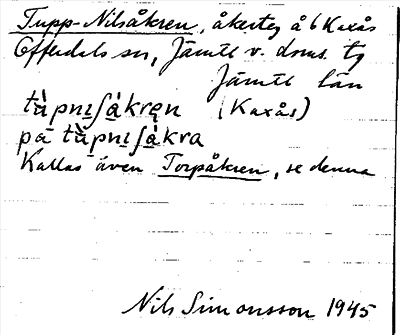 Tupp-Nilsåkren, åkerteg å 6 Kaxås
Offerdals sn, Jämtl v. doms. tg
Jämtl län
tùpnɪʃákrẹn (Kaxås)
på tùpnɪʃákra
Kallas även Torpåkren, se denna
Nils Simonsson 1945